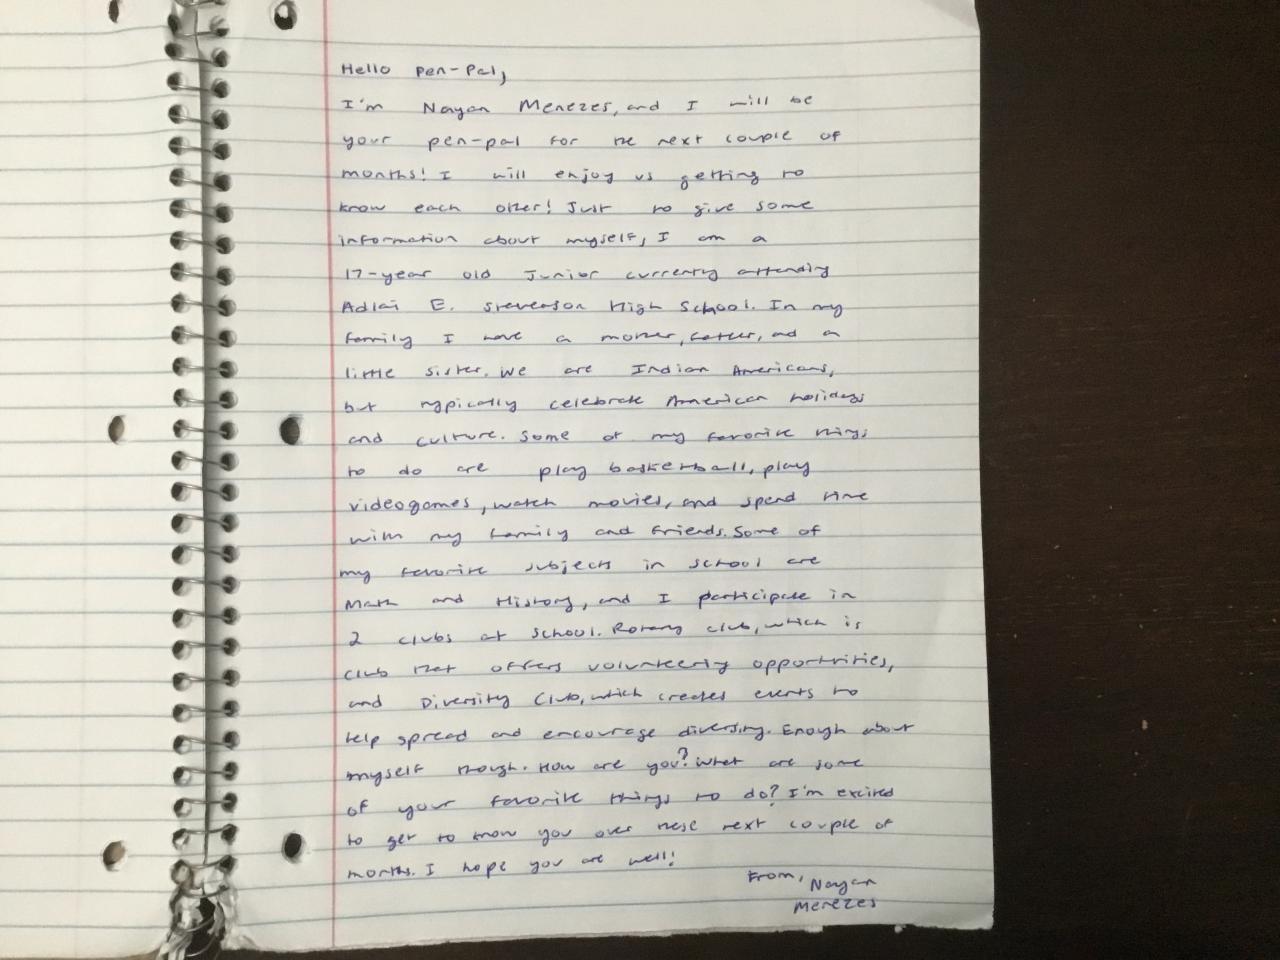 Hello Pen-Pal,
I'm Nayan Menezes, and I will be
your pen-pal for the next couple of
months! I will enjoy us getting to
know each other! Just to give some
information about myself, I am a
17-year old Junior currently attending
Adlai E. Stevenson High School. In my
family I have a mother, father, and a
little sister. We are Indian Americans,
but typically celebrate American holidays
and culture. Some of my favorite things
to do are play basketball, play
videogames, watch movies, and spend time
with my family and friends. Some of
my favorite subjects in school are
Math and History, and I participate in
2 clubs at school. Rotary club, which is
club that offers volunteering opportunities,
and Diversity Club, which creates events to
help spread and encourage diversity. Enough about
myself though. How are you? What are some
of your favorite things to do? I'm excited
to get to know you over these next couple of
months. I hope you are well!
From, Nayan
Menezes